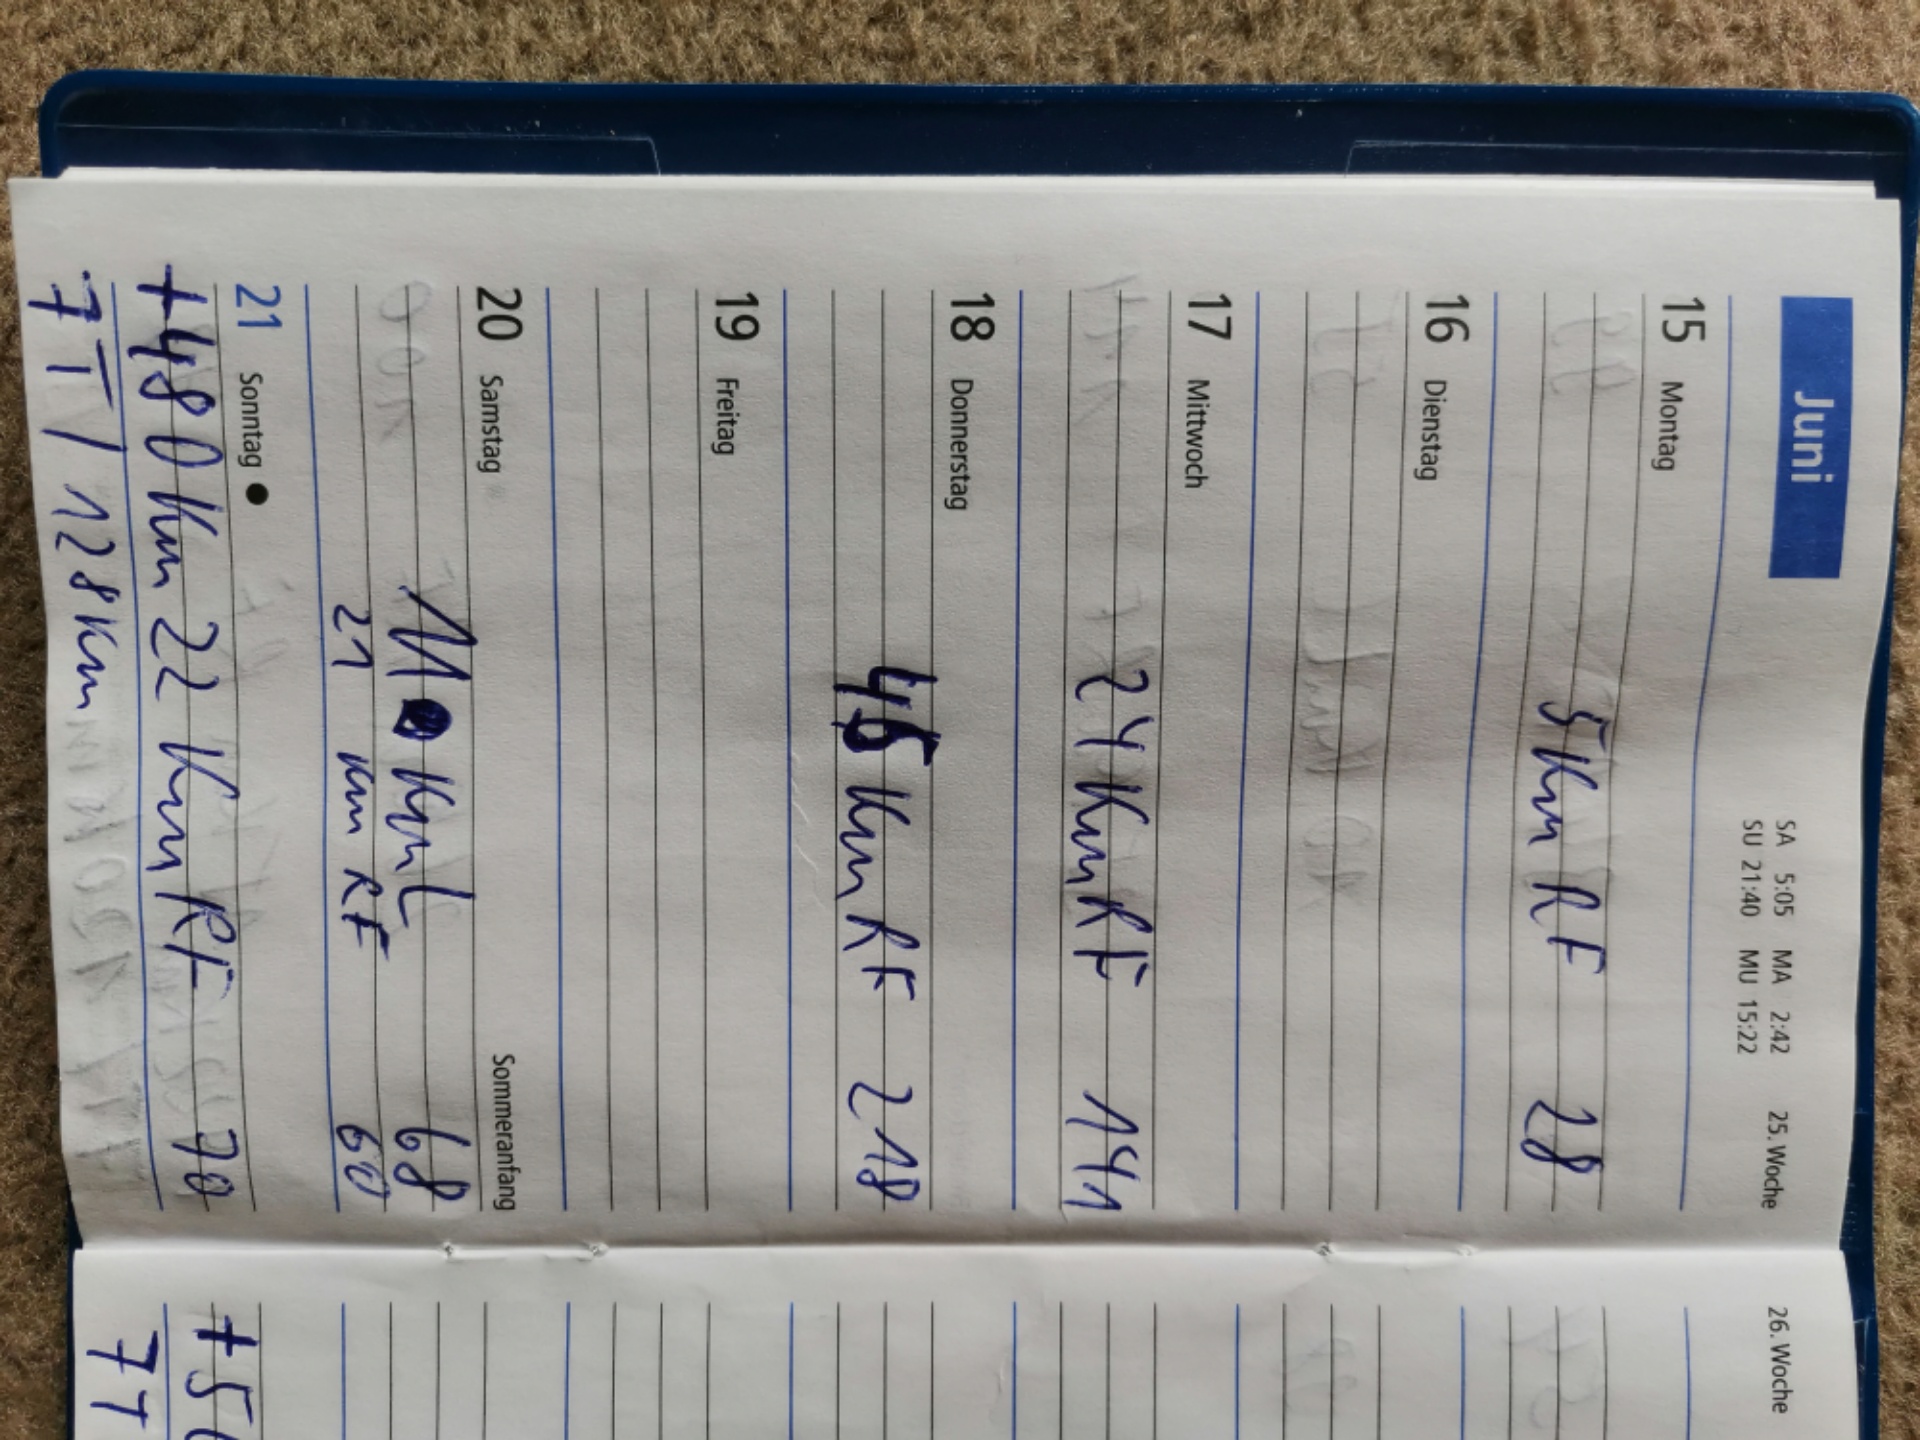 Juni
SA 5:05 MA 2:42 25. Woche
SU 21:40 MU 15:22
15 Montag
5 Km RF 28
16 Dienstag
17 Mittwoch
24 Km RF 141
18 Donnerstag
45 Km RF 218
19 Freitag
20 Samstag Sommeranfang
11 Km L 68
21 Km RF 60
21 Sonntag
+480 Km 22 Km RF 70
7T / 128 Km
26. Woche
7T